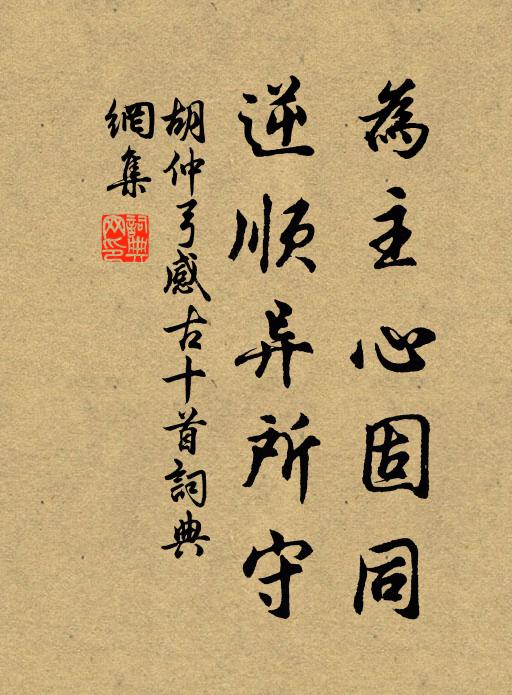 為主心固同
逆順异所守
胡仲弓感古十首詞典
網集
詞典
网印